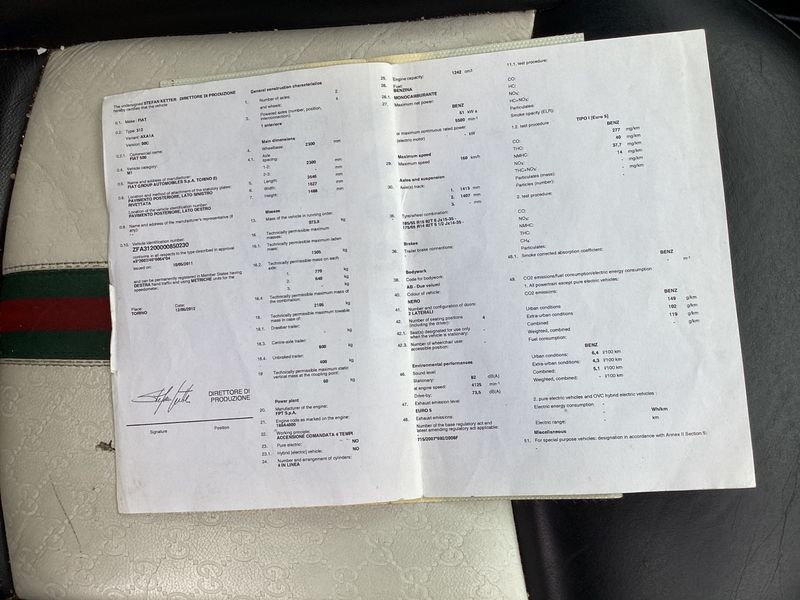 The undersigned STEFAN KETTER DIRETTORE DI PRODUZIONE
hereby certifies that the vehicle
0.1. Make: FIAT
0.2. Type: 312
Variant: AXA1A
Version: 08C
0.2.1. Commercial name:
FIAT 500
0.4. Vehicle category:
M1
0.5. Name and address of manufacturer:
FIAT GROUP AUTOMOBILES S.p.A. TORINO (I)
0.6. Location and method of attachment of the statutory plates:
PAVIMENTO POSTERIORE, LATO SINISTRO
RIVETTATA
Location of the vehicle identification number:
PAVIMENTO POSTERIORE, LATO DESTRO
0.9. Name and address of the manufacturer's representative (if
any):
0.10. Vehicle identification number:
ZFA31200000850230
conforms in all respects to the type described in approval
issued on: 10/05/2011
and can be permanently registered in Member States having
DESTRA hand traffic and using METRICHE units for the
speedometer.
Place: Date:
TORINO 12/06/2012
DIRETTORE DI
PRODUZIONE
Signature Position
General construction characteristics
1. Number of axles: 2
and wheels: 4
3. Powered axles (number, position,
interconnection):
1 anteriore
Main dimensions
4. Wheelbase: 2300 mm
4.1. Axle
spacing:
1-2: 2300 mm
2-3: mm
5. Length: 3546 mm
6. Width: 1627 mm
7. Height: 1488 mm
Masses
13. Mass of the vehicle in running order:
kg
16. Technically permissible maximum
masses:
16.1. Technically permissible maximum laden
mass:
1305 kg
16.2. Technically permissible mass on each
axle:
1. 770 kg
2. 640 kg
3. kg
16.4 Technically permissible maximum mass of
the combination:
2105 kg
18. Technically permissible maximum towable
mass in case of:
18.1. Drawbar trailer:
- kg
18.3. Centre-axle trailer:
800 kg
18.4. Unbraked trailer:
400 kg
19 Technically permissible maximum static
vertical mass at the coupling point:
60 kg
Power plant
20. Manufacturer of the engine:
FPT S.p.A.
21. Engine code as marked on the engine:
169A4000
22. Working principle:
ACCENSIONE COMANDATA 4 TEMPI
23. Pure electric: NO
23.1. Hybrid [electric] vehicle: NO
24. Number and arrangement of cylinders:
4 IN LINEA
25. Engine capacity: 1242 cm³
26. Fuel:
BENZINA
26.1. MONOCARBURANTE
27. Maximum net power:
BENZ
51 kW a
5500 min-¹
or maximum continuous rated power
(electric motor) - kW
Maximum speed
29. Maximum speed 160 km/h
Axles and suspension
30. Axle(s) track:
1. 1413 mm
2. 1407 mm
3. - mm
35. Tyre/wheel combination:
Brakes
36. Trailer brake connections:
Bodywork
38. Code for bodywork:
AB - Due volumi
40. Colour of vehicle:
NERO
41. Number and configuration of doors:
2 LATERALI
42. Number of seating positions
(including the driver): 4
42.1. Seat(s) designated for use only
when the vehicle is stationary: -
42.3. Number of wheelchair user
accessible position: -
Environmental performances
46. Sound level
Stationary: 82 dB(A)
at engine speed: 4125 min-¹
Drive-by: 73,5 dB(A)
47. Exhaust emission level:
EURO 5
48. Exhaust emissions:
Number of the base regulatory act and
latest amending regulatory act applicable:
715/2007*692/2008F
1.1. test procedure:
CO:
HC:
NOₓ:
HC+NOₓ:
Particulates:
Smoke opacity (ELR):
1.2. test procedure TIPO I [Euro 5]
BENZ
CO: 277 mg/km
THC: 40 mg/km
NMHC: 37,7 mg/km
NOₓ: 14 mg/km
THC+NOₓ: - mg/km
Particulates (mass):
Particles (number):
2. test procedure:
CO:
NOₓ:
NMHC:
THC:
CH₄:
Particulates:
48.1. Smoke corrected absorption coefficient: BENZ
- m-¹
49. CO2 emissions/fuel consumption/electric energy consumption
1. All powertrain except pure electric vehicles:
CO2 emissions: BENZ
Urban conditions 149 g/km
Extra-urban conditions 102 g/km
Combined 119 g/km
Weighted, combined - g/km
Fuel consumption:
BENZ
Urban conditions: 6,4 l/100 km
Extra-urban conditions: 4,3 l/100 km
Combined: 5,1 l/100 km
Weighted, combined: - l/100 km
2. pure electric vehicles and OVC hybrid electric vehicles :
Electric energy consumption - Wh/km
Electric range: - km
Miscellaneous
51. For special purpose vehicles: designation in accordance with Annex II Section 5: